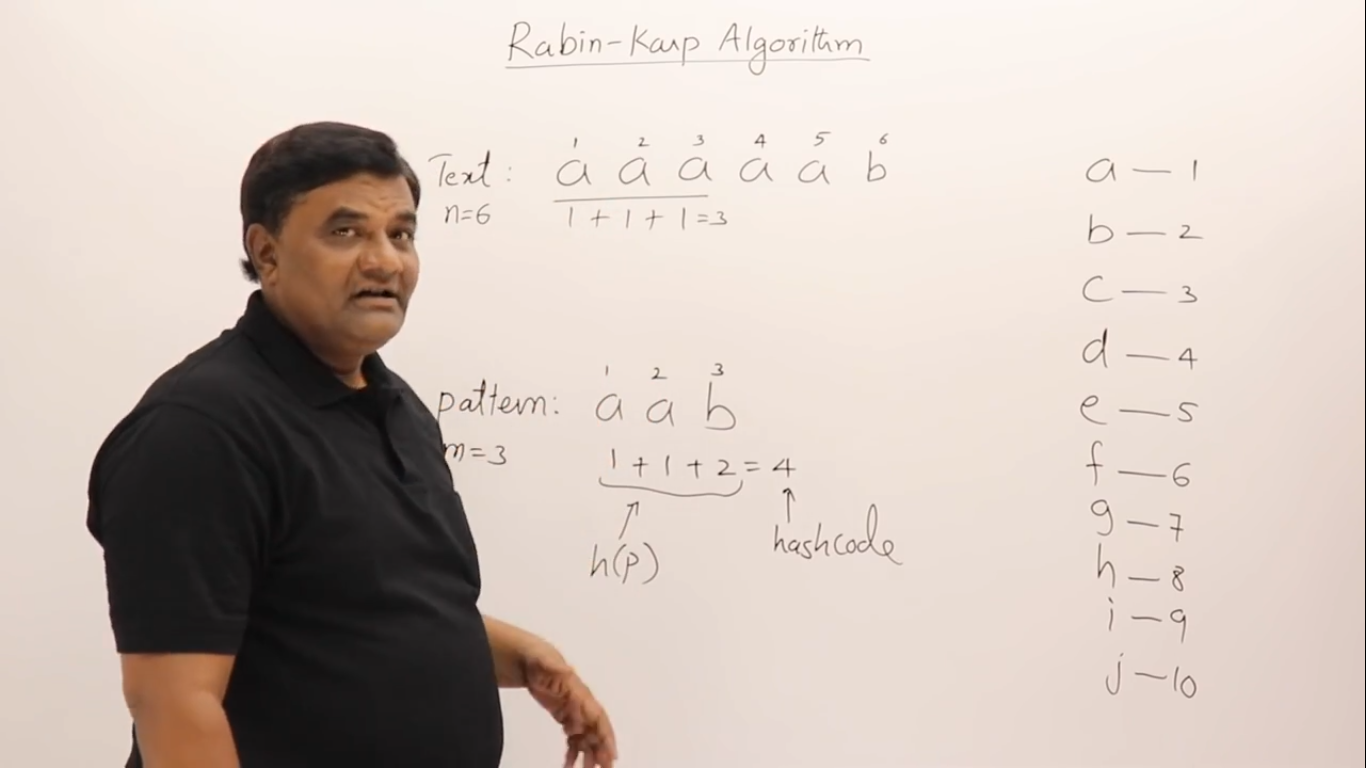 Rabin-Karp Algorithm
1 2 3 4 5 6
Text: a a a a a b
n=6 1+1+1=3
1 2 3
pattern: a a b
m=3 1+1+2=4
h(p) hashcode
a—1
b—2
c—3
d—4
e—5
f—6
g—7
h—8
i—9
j—10